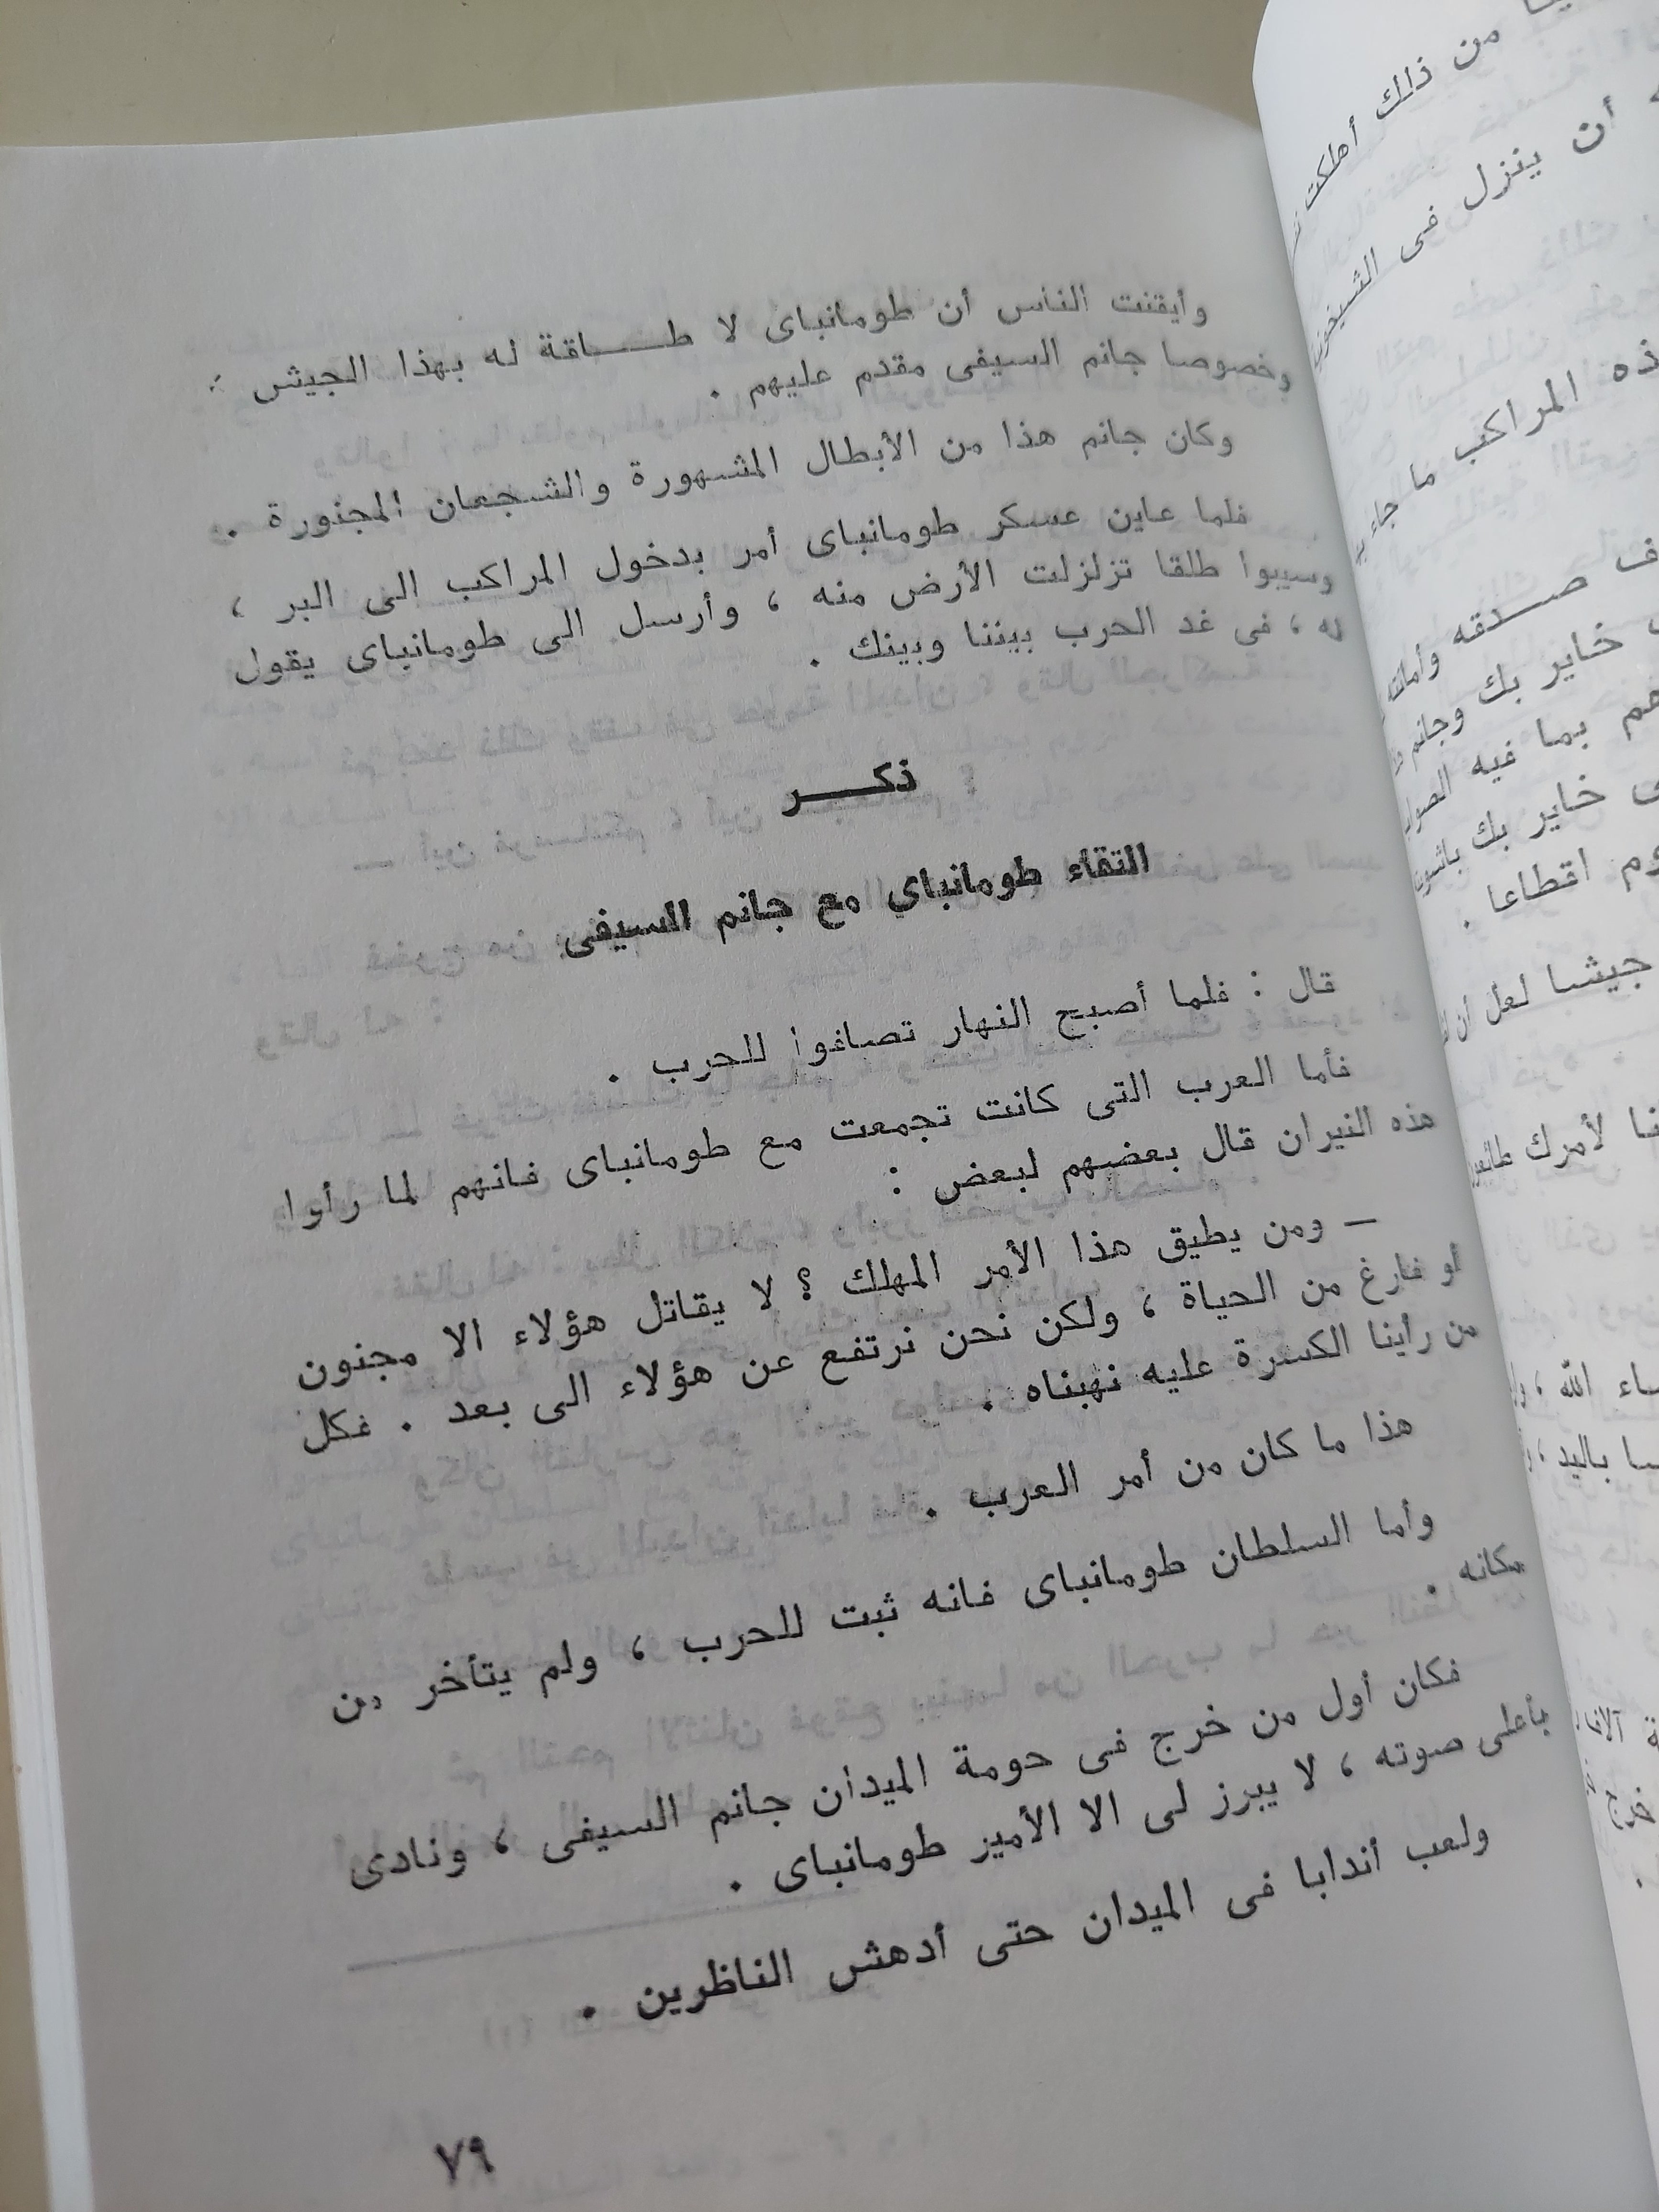 وأيقنت الناس أن طومانباى لا طـــاقة له بهذا الجيش ؛
وخصوصا جانم السيفى مقدم عليهم .
وكان جانم هذا من الأبطال المشهورة والشجعان المجذورة .
فلما عاين عسكر طومانباى أمر بدخول المراكب الى البر ،
وسيبوا طلقا تزلزلت الأرض منه ، وأرسل الى طومانباى يقول
له ، فى غد الحرب بيننا وبينك .
ذكـــر
التقاء طومانباى مع جانم السيفى
قال : فلما أصبح النهار تصافوا للحرب .
فأما العرب التى كانت تجمعت مع طومانباى فانهم لما رأوا
هذه النيران قال بعضهم لبعض :
— ومن يطيق هذا الأمر المهلك ؟ لا يقاتل هؤلاء الا مجنون
أو فارغ من الحياة ، ولكن نحن نرتفع عن هؤلاء الى بعد . فكل
من رأينا الكسرة عليه نهبناه .
هذا ما كان من أمر العرب .
وأما السلطان طومانباى فانه ثبت للحرب ، ولم يتأخر من
مكانه .
فكان أول من خرج فى حومة الميدان جانم السيفى ، ونادى
بأعلى صوته ، لا يبرز لى الا الأمير طومانباى .
ولعب أندابا فى الميدان حتى أدهش الناظرين .
٧٩
من ذلك أهلكت
أن ينزل فى
المراكب ما جاء
صـدقه وأمانته
خاير بك وجانم
بما فيه
خاير بك
اقطاعا .
جيشا لعل أن
لأمرك
الله ،
باليد ،
خرج